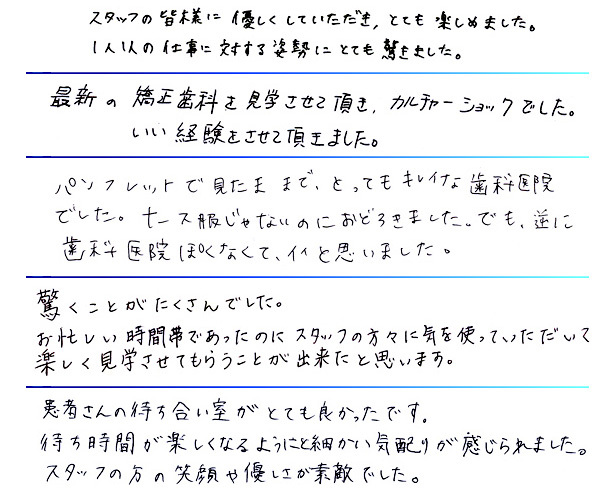 スタッフの皆様に優しくしていただき、とても楽しめました。
1人1人の仕事に対する姿勢にとても驚きました。
最新の矯正歯科を見学させて頂き、カルチャーショックでした。
いい経験をさせて頂きました。
パンフレットで見たままで、とってもキレイな歯科医院
でした。ナース服じゃないのにおどろきました。でも、逆に
歯科医院ぽくなくて、イイと思いました。
驚くことがたくさんでした。
お忙しい時間帯であったのにスタッフの方々に気を使っていただいて
楽しく見学させてもらうことが出来たと思います。
患者さんの待ち合い室がとても良かったです。
待ち時間が楽しくなるようにと細かい気配りが感じられました。
スタッフの方の笑顔や優しさが素敵でした。